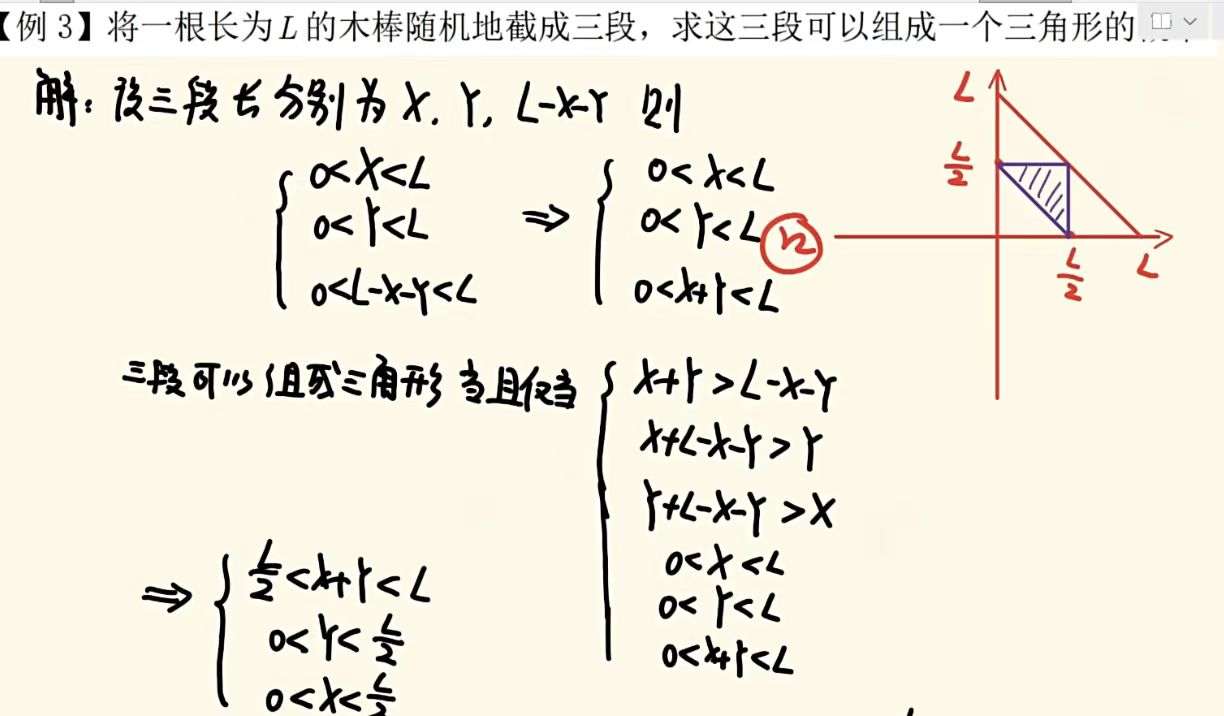 【例 3】将一根长为 L 的木棒随机地截成三段，求这三段可以组成一个三角形的
解：设三段长分别为 X, Y, L-X-Y 则
0<X<L
0<Y<L
0<L-X-Y<L
⇒
0<X<L
0<Y<L
0<X+Y<L
Ω
L
L/2
L/2
L
三段可以组成三角形当且仅当
X+Y>L-X-Y
X+L-X-Y>Y
Y+L-X-Y>X
0<X<L
0<Y<L
0<X+Y<L
⇒
L/2<X+Y<L
0<Y<L/2
0<X<L/2